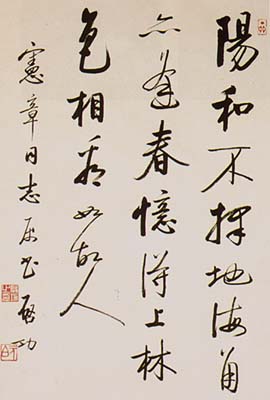 陽和不擇地海角
亦逢春憶得上林
色相看如故人
憲章同志属書 啟功